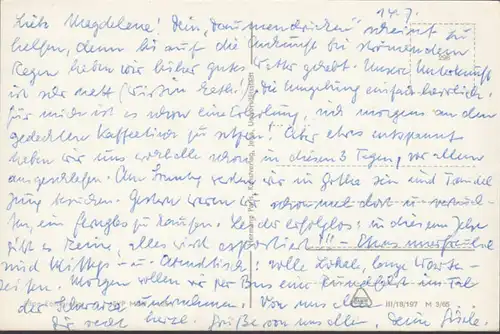 14.7.
Liebe Magdelene! Dein „Daumendrücken" scheint zu
helfen, denn bis auf die Ankunft bei strömendem
Regen haben wir bisher gutes Wetter gehabt. Unsere Unterkunft
ist sehr nett (Wirtin Kath.), die Umgebung einfach herrlich.
Für mich ist es schon eine Erholung, sich morgens an den
gedeckten Kaffeetisch zu setzen! Aber etwas entspannt
haben wir uns wohl alle schon in diesen 3 Tagen, vor allem
ausgeschlafen. Am Sonntag werden wir in Gotha sein und
besuchen. Gestern waren wir schon mal dort u. versuch-
ten, ein zu kaufen. Leider erfolglos: in diesem Jahr
gibt es keine, alles wird exportiert!!! – Etwas unerfreulich
sind Mittags- u. Abendtisch: volle Lokale, lange Warte-
zeiten. Morgen wollen wir per Bus eine Rundfahrt ins Tal
der Schwarza unternehmen. Von uns allen
für recht herzl. Grüße von uns allen Deine Gisela.
III/18/197 M 3/65